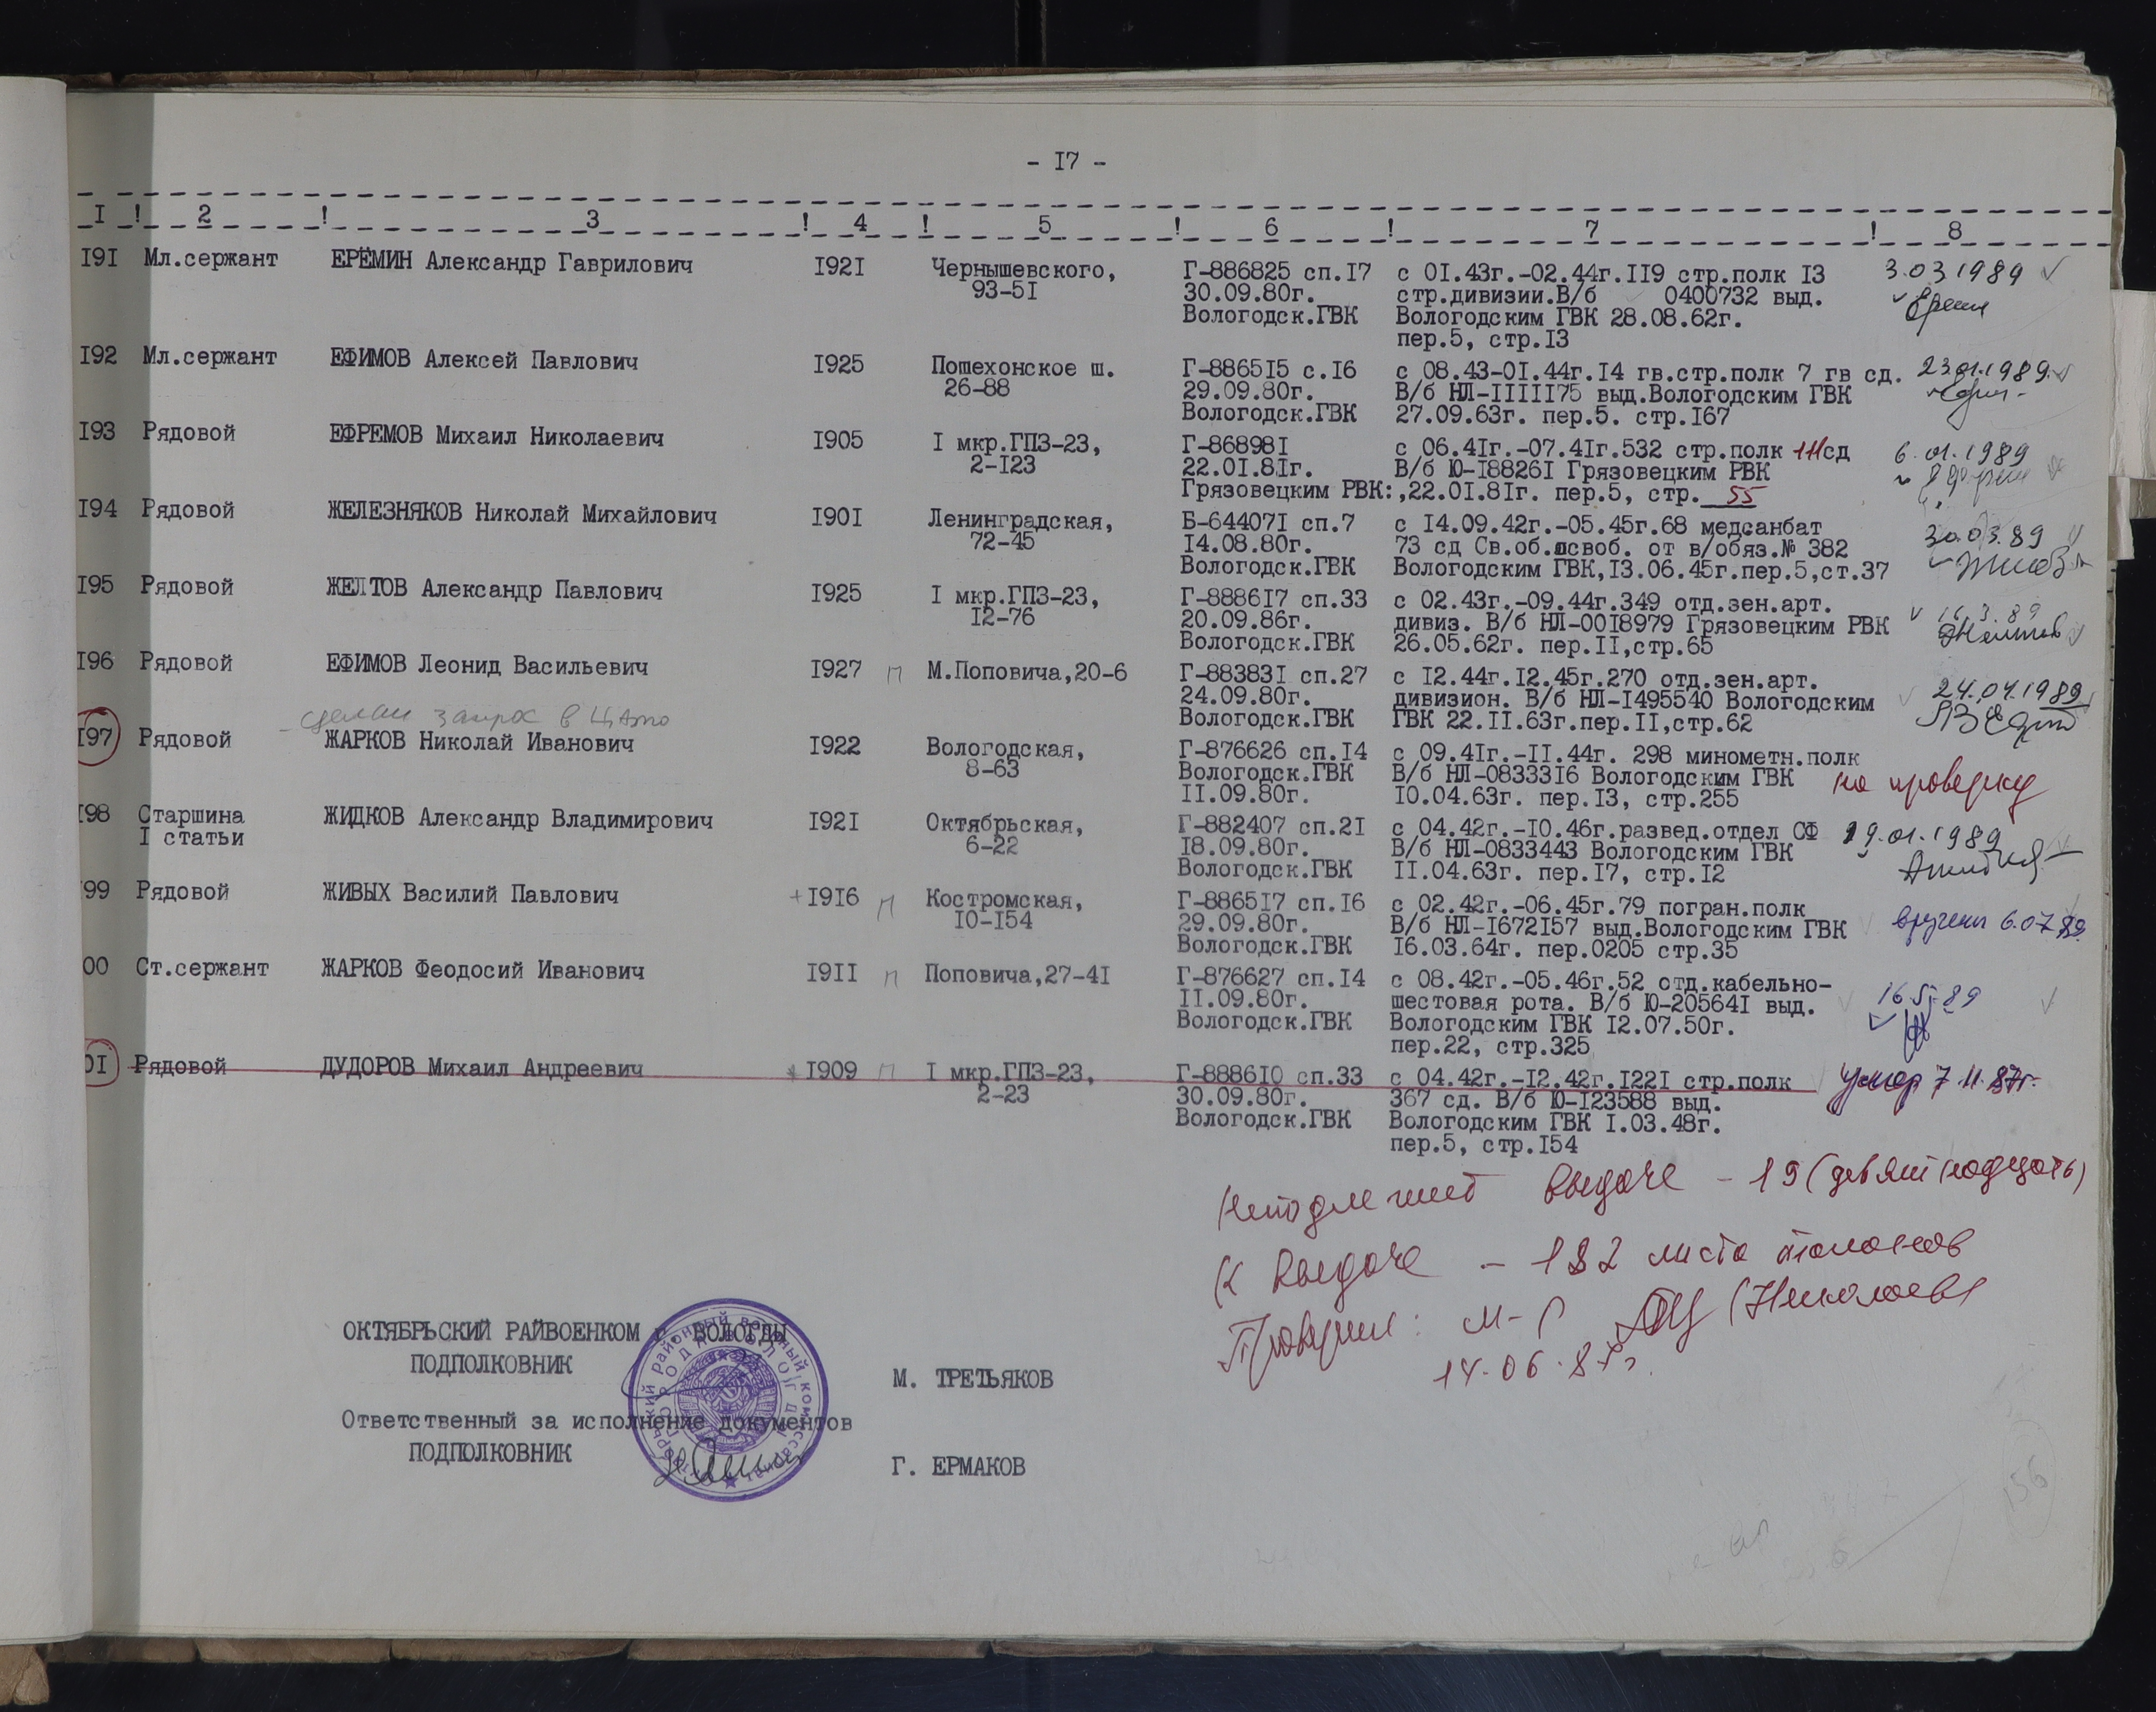 - I7 -
I ! 2 ! 3 ! 4 ! 5 ! 6 ! 7 ! 8
I9I Мл.сержант ЕРЁМИН Александр Гаврилович I92I Чернышевского, Г-886825 сп.I7 с 0I.43г.-02.44г.II9 стр.полк I3 3.03 1989
93-5I 30.09.80г. стр.дивизии.В/б 0400732 выд.
Вологодск.ГВК Вологодским ГВК 28.08.62г.
пер.5, стр.I3
I92 Мл.сержант ЕФИМОВ Алексей Павлович I925 Пошехонское ш. Г-8865I5 с.I6 с 08.43-0I.44г.I4 гв.стр.полк 7 гв сд. 23.01.1989
26-88 29.09.80г. В/б НЛ-IIIII75 выд.Вологодским ГВК
Вологодск.ГВК 27.09.63г. пер.5. стр.I67
I93 Рядовой ЕФРЕМОВ Михаил Николаевич I905 I мкр.ГПЗ-23, Г-86898I с 06.4Iг.-07.4Iг.532 стр.полк 111сд 6.01.1989
2-I23 22.0I.8Iг. В/б Ю-I8826I Грязовецким РВК
Грязовецким РВК:,22.0I.8Iг. пер.5, стр. 55
I94 Рядовой ЖЕЛЕЗНЯКОВ Николай Михайлович I90I Ленинградская, Б-64407I сп.7 с I4.09.42г.-05.45г.68 медсанбат 30.03.89
72-45 I4.08.80г. 73 сд Св.об.освоб. от в/обяз.№ 382
Вологодск.ГВК Вологодским ГВК,I3.06.45г.пер.5,ст.37
I95 Рядовой ЖЕЛТОВ Александр Павлович I925 I мкр.ГПЗ-23, Г-8886I7 сп.33 с 02.43г.-09.44г.349 отд.зен.арт. 16.3.89
I2-76 20.09.86г. дивиз. В/б НЛ-00I8979 Грязовецким РВК
Вологодск.ГВК 26.05.62г. пер.II,стр.65
I96 Рядовой ЕФИМОВ Леонид Васильевич I927 п М.Поповича,20-6 Г-88383I сп.27 с I2.44г.I2.45г.270 отд.зен.арт. 24.04.1989
24.09.80г. дивизион. В/б НЛ-I495540 Вологодским
Вологодск.ГВК ГВК 22.II.63г.пер.II,стр.62
сделан запрос в ЦАМО
I97 Рядовой ЖАРКОВ Николай Иванович I922 Вологодская, Г-876626 сп.I4 с 09.4Iг.-II.44г. 298 минометн.полк
8-63 Вологодск.ГВК В/б НЛ-08333I6 Вологодским ГВК на проверку
II.09.80г. I0.04.63г. пер.I3, стр.255
I98 Старшина ЖИДКОВ Александр Владимирович I92I Октябрьская, Г-882407 сп.2I с 04.42г.-I0.46г.развед.отдел СФ 19.01.1989
I статьи 6-22 I8.09.80г. В/б НЛ-0833443 Вологодским ГВК
Вологодск.ГВК II.04.63г. пер.I7, стр.I2
99 Рядовой ЖИВЫХ Василий Павлович +I9I6 п Костромская, Г-8865I7 сп.I6 с 02.42г.-06.45г.79 погран.полк
I0-I54 29.09.80г. В/б НЛ-I672I57 выд.Вологодским ГВК вручены 6.07.89
Вологодск.ГВК I6.03.64г. пер.0205 стр.35
00 Ст.сержант ЖАРКОВ Феодосий Иванович I9II п Поповича,27-4I Г-876627 сп.I4 с 08.42г.-05.46г.52 отд.кабельно-
II.09.80г. шестовая рота. В/б Ю-20564I выд. 16.5.89
Вологодск.ГВК Вологодским ГВК I2.07.50г.
пер.22, стр.325
0I Рядовой ДУДОРОВ Михаил Андреевич +I909 п I мкр.ГПЗ-23, Г-8886I0 сп.33 с 04.42г.-I2.42г.I22I стр.полк умер 7.11.87г.
2-23 30.09.80г. 367 сд. В/б Ю-I23588 выд.
Вологодск.ГВК Вологодским ГВК I.03.48г.
пер.5, стр.I54
Неподлежит выдаче - 19 (девятнадцать)
К выдаче - 182 листа талонов
Проверил: м-р (Николаев)
14.06.87г.
ОКТЯБРЬСКИЙ РАЙВОЕНКОМ г. ВОЛОГДЫ
ПОДПОЛКОВНИК М. ТРЕТЬЯКОВ
Ответственный за исполнение документов
ПОДПОЛКОВНИК Г. ЕРМАКОВ
156